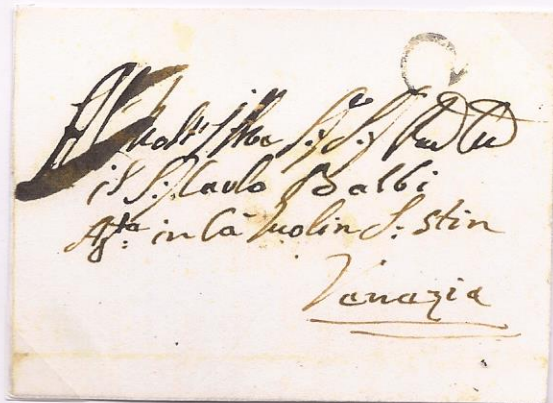 Al Molt' Ill:re Sig:r Sig:r
il S:r Carlo Balbi
Ag:ta in Cà Molin S: Stin
Venezia